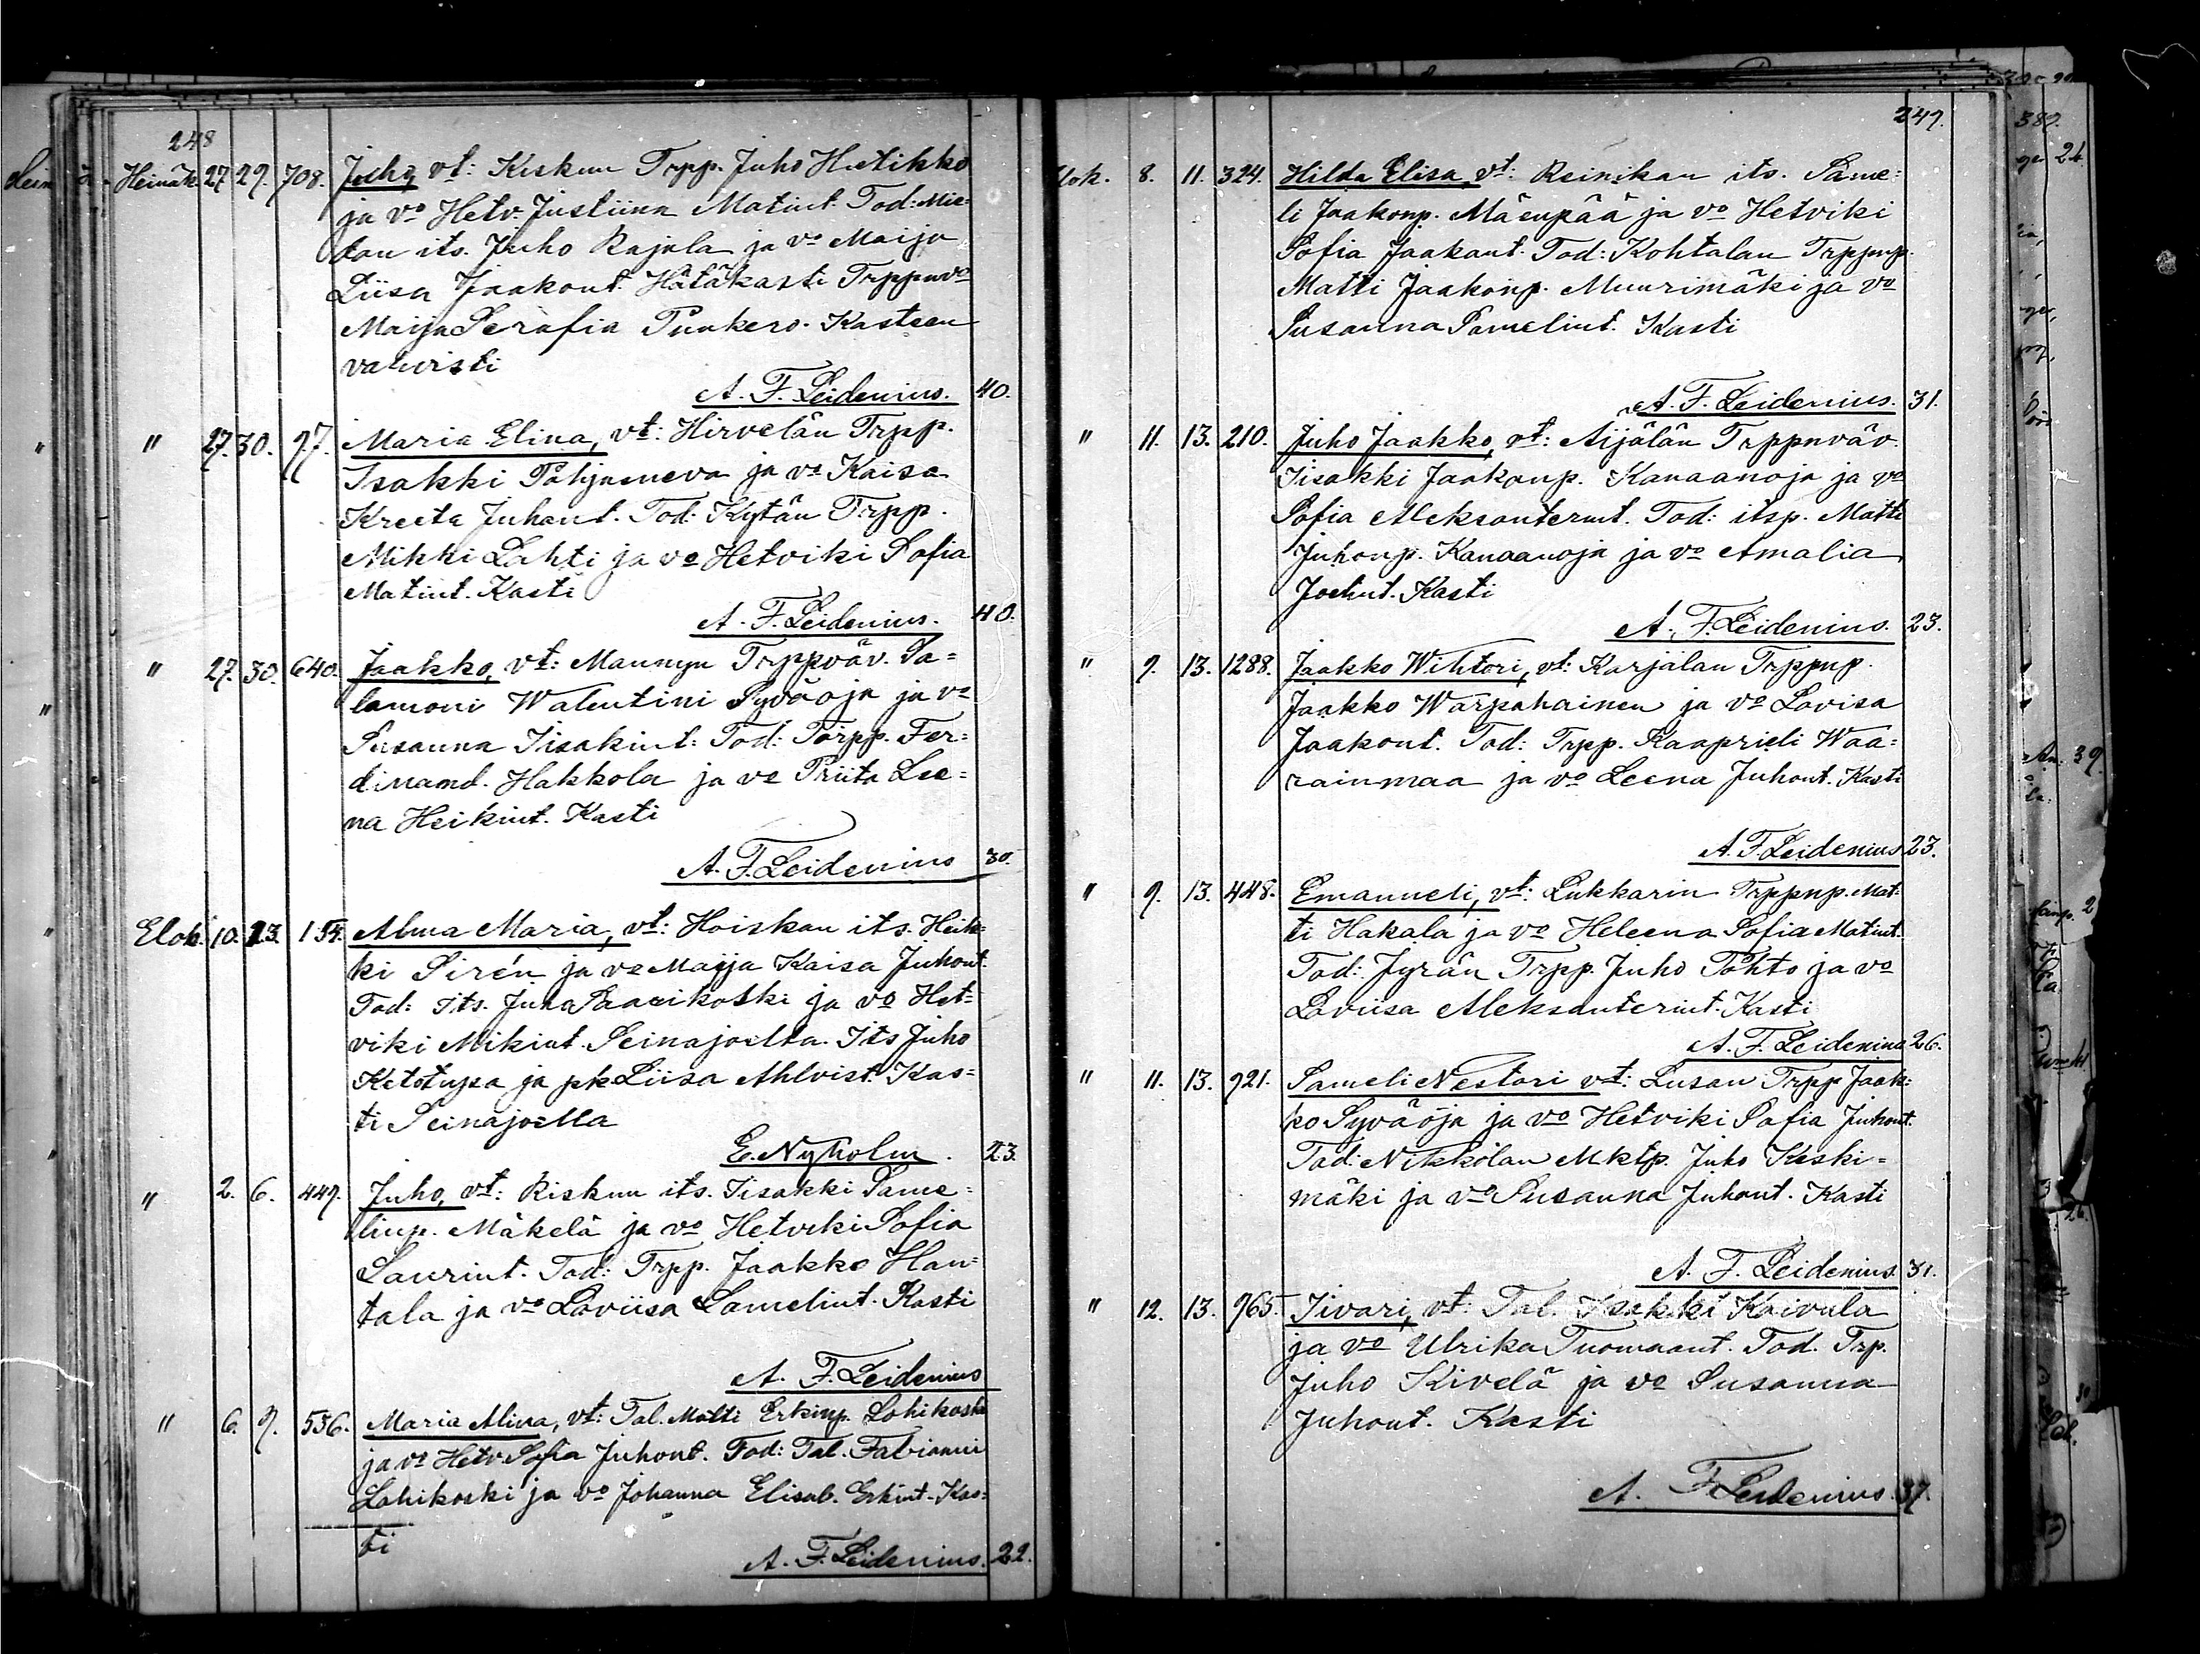 248
Heinäk. 27. 29. 708. Juho, vt: Kiskun Trpp. Juho Hietikko
ja vo Hetv. Justiina Matint. Tod: Mie-
tan its. Juho Rajala ja vo Maija
Liisa Jaakont. Hätäkasti Trppnvo
Maija Serafia Puukero. Kasteen
vahvisti
A. F. Leidenius. 40.
" 27. 30. 97. Maria Elina, vt: Hirvelän Trpp.
Isakki Pohjasneva ja vo Kaisa
Kreeta Juhont. Tod: Kytän Trpp.
Mikki Lahti ja vo Hetviki Sofia
Matint. Kasti
A. F. Leidenius. 40.
" 27. 30. 640. Jaakko, vt: Maunun Trppväv. Sa=
lomoni Walentini Syväoja ja vo
Susanna Iisakint: Tod: Torpp. Fer=
dinand. Hakkola ja vo Priita Lee=
na Heikint. Kasti
A. F. Leidenius 30.
Elok. 10. 13. 154. Alma Maria, vt: Hoiskan its. Heik=
ki Sirén ja vo Maija Kaisa Juhont.
Tod: its. Juha Saarikoski ja vo Het=
viki Mikint. Seinäjoelta. Its Juho
Ketotupa ja pk Liisa Ahlvist. Kas=
ti Seinäjoella
E. Nyholm. 23.
" 2. 6. 449. Juho, vt: Riskun its. Iisakki Same=
linp. Mäkelä ja vo Hetviki Sofia
Laurint. Tod: Trpp. Jaakko Han=
tala ja vo Loviisa Samelint. Kasti
A. F. Leidenius
" 6. 9. 536. Maria Alina, vt: Tal. Matti Erkinp. Lohikoski
ja vo Hetv Sofia Juhont. Tod: Tal. Fabianni
Lohikoski ja vo Johanna Elisab. Erkint. Kas=
ti
A. F. Leidenius. 22.
249.
Elok. 8. 11. 324. Hilda Elisa, vt: Reinikan its. Same=
li Jaakonp. Mäenpää ja vo Hetviki
Sofia Jaakont. Tod: Kohtalan Trppnp.
Matti Jaakonp. Muurimäki ja vo
Susanna Samelint. Kasti
A. F. Leidenius. 31.
" 11. 13. 210. Juho Jaakko, vt: Äijälän Trppnväv.
Iisakki Jaakonp. Kanaanoja ja vo
Sofia Aleksanterint. Tod: itsp. Matti
Juhonp. Kanaanoja ja vo Amalia
Joelint. Kasti
A. F. Leidenius. 23.
" 9. 13. 1288. Jaakko Wihtori, vt: Karjalan Trppnp.
Jaakko Warpahainen ja vo Lovisa
Jaakont. Tod: Trpp. Kaaprieli Waa=
rainmaa ja vo Leena Juhont. Kasti
A. F. Leidenius 23.
" 9. 13. 448. Emanueli, vt: Lukkarin Trppnp. Mat=
ti Hakala ja vo Heleena Sofia Matint.
Tod: Jyrän Trpp. Juho Pohto ja vo
Loviisa Aleksanterint. Kasti
A. F. Leidenius 26.
" 11. 13. 921. Sameli Nestori vt: Lusan Trpp Jaak=
ko Syväoja ja vo Hetviki Sofia Juhont.
Tod: Nikkolan Mktp. Juho Keski=
mäki ja vo Susanna Juhont. Kasti
A. F. Leidenius 31.
" 12. 13. 965. Iivari, vt: Tal. Isakki Koivula
ja vo Ulrika Tuomaant. Tod. Trp.
Juho Kivelä ja vo Susanna
Juhont. Kasti
A. F. Leidenius. 37.